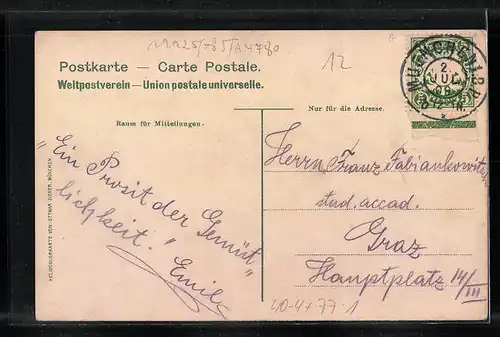 Postkarte — Carte Postale.
Weltpostverein — Union postale universelle.
12
MÜNCHEN
2.
JUL
Nur für die Adresse.
Raum für Mitteilungen.
"Ein Prosit der Gemüt-
lichkeit."
Emil
Herrn Franz Fabiankowitsch
stud. accad.
Graz
Hauptplatz 14/III
40-4+77-1
HELIOCOLORKARTE VON OTTMAR ZIEHER, MÜNCHEN